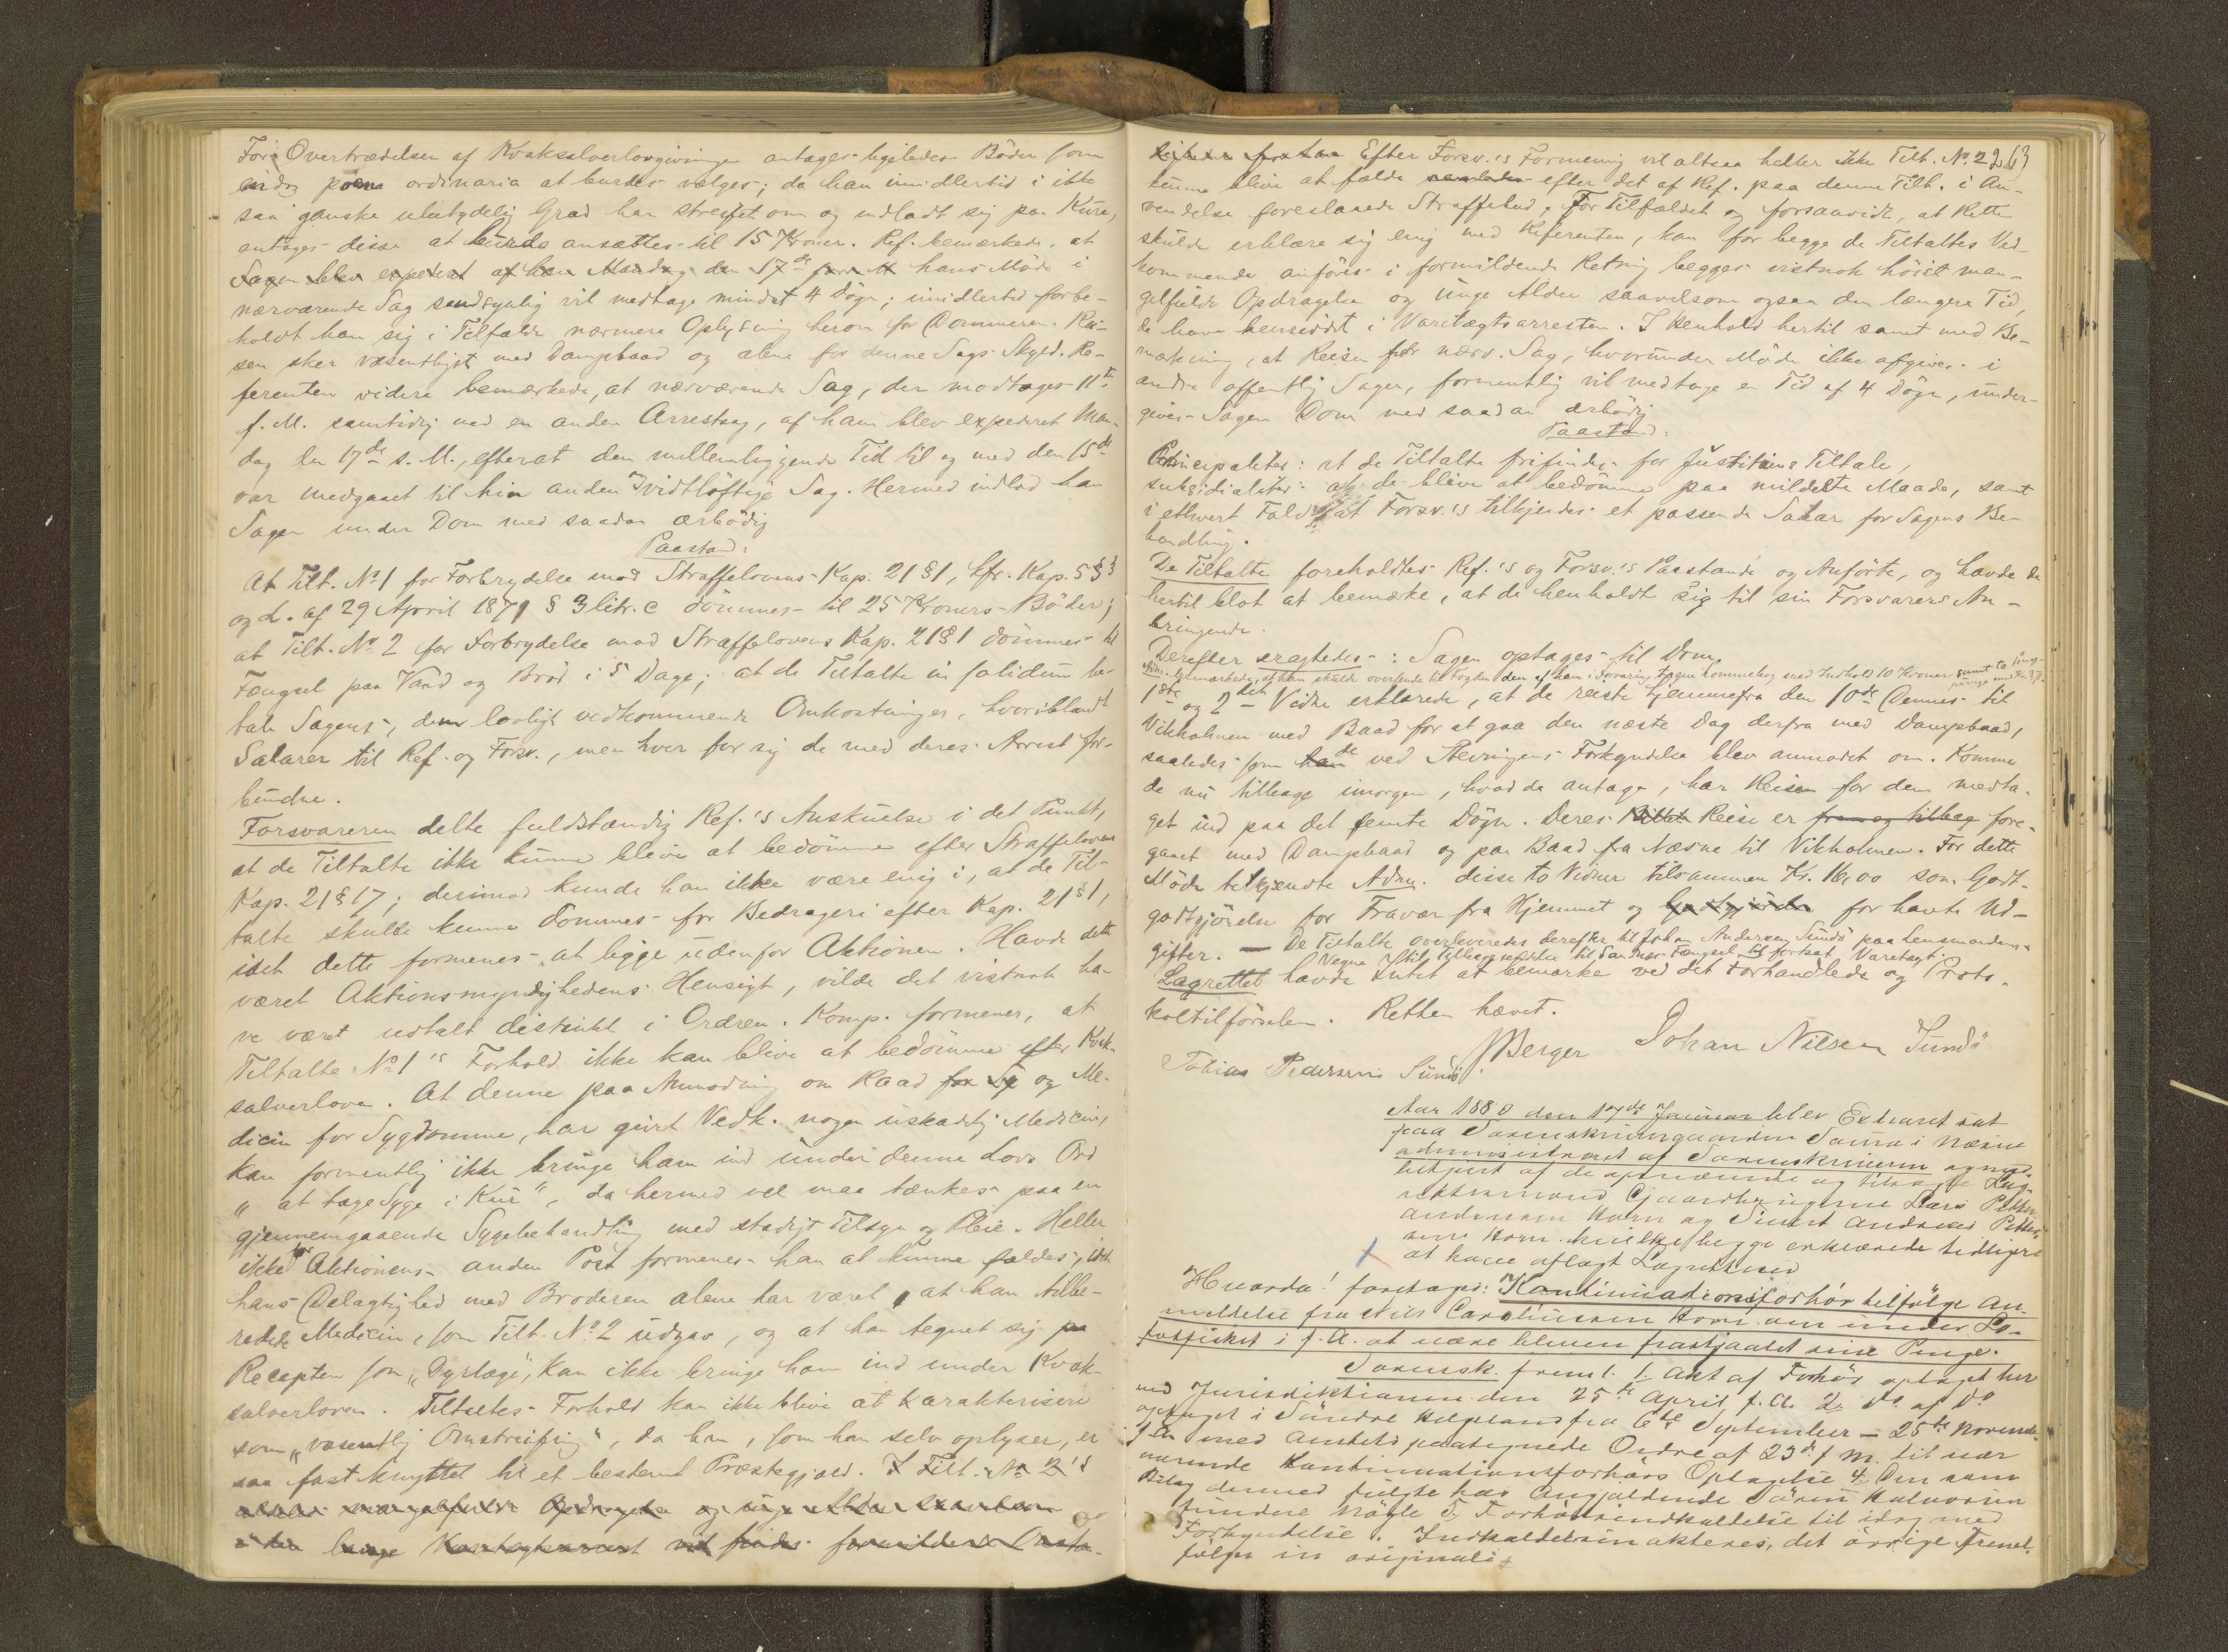 For Overtrædelsen af Kvaksalverlovgivningen antages ligeledes Bøder som
endog poena ordinaria at burde vælges; da han imidlertid i ikke
saa ganske ubetydelig Grad har streifet om og indladt sig paa Kure,
antages disse at burde ansættes til 15 Kroner. Ref. bemærkede, at
Sagen blev expederet af ham Mandag den 17de hans Møde i
nærværende Sag sandsynlig vil medtage mindst 4 Døgn; imidlertid forbe-
holdt han sig i Tilfælde nærmere Oplysning herom for Dommeren. Rei-
sen sker væsentligst med Dampbaad og alene for denne Sags Skyld. Re-
ferenten videre bemærkede, at nærværende Sag, der modtoges 11te
f. M. samtidig med en anden Arrestsag, af ham blev expederet Man-
dag den 17de s. M., efterat den mellemliggende Tid til og med den 15de
var medgaaet til hin anden vidtløftige Sag. Hermed indlod han
Sagen under Dom med saadan ærbødig
Paastand:
At Tilt. No 1 for Forbrydelse mod Straffelovens Kap. 21 § 1, cfr. Kap. 5 § 3
og L. af 29 April 1871 § 3 litr. c dømmes til 25 Kroners Bøder;
at Tilt. No 2 for Forbrydelse mod Straffelovens Kap. 21 § 1 dømmes til
Fængsel paa Vand og Brød i 5 Dage; at de Tiltalte in solidum be-
tale Sagens, dem lovligt vedkommende Omkostninger, hvoriblandt
Salarer til Ref. og Forsv., men hver for sig de med deres Arrest for-
bundne.
Forsvareren delte fuldstændig Ref.'s Anskuelse i det Punkt,
at de Tiltalte ikke kunne blive at bedømme efter Straffelovens
Kap. 21 § 17; derimod kunde han ikke være enig i, at de Til-
talte skulde kunne dømmes for Bedrageri efter Kap. 21 § 1,
idet dette formenes at ligge udenfor Aktionen. Havde dette
været Aktionsmyndighedens Hensigt, vilde det vistnok ha-
ve været udtalt distinkt i Ordren. Komp. formener, at
Tiltalte No 1's Forhold ikke kan blive at bedømme efter Kvak-
salverloven. At denne paa Anmodning om Raad for Sy og Me-
dicin for Sygdomme, har givet Vedk. nogen uskadelig Medicin,
kan formentlig ikke bringe ham ind under denne Lovs Ord
"at tage Syge i Kur", da hermed vel maa tænkes paa en
gjennemgaaende Sygebehandling med stadigt Tilsyn og Pleie. Heller
ikke for Aktionens anden Post formenes han at kunne fældes, idet
hans Delagtighed med Broderen alene har været, at han tilbe-
redede Medicin, som Tilt. No 2 udgav, og at han tegnet sig paa
Recepten som "Dyrlæge", kan ikke bringe ham ind under Kvak-
salverloven. Tiltaltes Forhold kan ikke blive at karakterisere
som "væsentlig Omstreifing", da han, som han selv oplyser, er
saa fast knyttet til et bestemt Præstegjæld. I Tilt. No 2's
mangelfulde Opdragelse og unge Alder
lange Varetægtsarrest vil findes formildende
Efter Forsv.'s Formening vil altsaa heller ikke Tilt. No. 2 263
kunne blive at fælde efter det af Ref. paa denne Tilt. i An-
vendelse foreslaaede Straffebud. For Tilfældet og forsaavidt, at Retten
skulde erklære sig enig med Referenten, kan for begge de Tiltaltes Ved-
kommende anføres i formildende Retning begges vistnok høist man-
gelfulde Opdragelse og unge Alder saavelsom ogsaa den længere Tid,
de have hensiddet i Varetægtsarresten. I Henhold hertil samt med Be-
mærkning, at Reisen for nærv. Sag, hvorunder Møde ikke afgives i
andre offentlig Sager, formentlig vil medtage en Tid af 4 Døgn, under-
gives Sagen Dom med saadan ærbødig
Paastand:
Principaliter: at de Tiltalte frifindes for Justitiens Tiltale,
subsidialiter: at de blive at bedømme paa mildeste Maade, samt
i ethvert Fald at Forsv.'s tilkjendes et passende Salær for Sagens Be-
handling.
De Tiltalte foreholdtes Ref.'s og Forsv.'s Paastande og Anførte, og havde de
hertil blot at bemærke, at de henholdt sig til sin Forsvarers An-
bringende.
Derefter eragtedes: Sagen optages til Dom.
Adm. bemærkede, at han skulde oversende til Fogden den af ham i Forvaring tagne Lommebog med Indhold 10 Kroner samt to
1ste og 2det Vidne erklærede, at de reiste hjemmefra den 10de Dennes til
Vikholmen med Baad for at gaa den næste Dag derfra med Dampbaad,
saaledes som de ved Stevningens Forkyndelse blev anmodet om. Komme
de nu tilbage imorgen, hvad de antage, har Reisen for dem medta-
get ind paa det femte Døgn. Deres Reise er frem og tilbage fore-
gaaet med Dampbaad og paa Baad fra Næsne til Vikholmen. For dette
Møde tilkjendte Adm. disse to Vidner tilsammen Kr. 16,00 som Godt-
godtgjørelse for Fravær fra Hjemmet og Godtgjørelse for havte Ud-
gifter. — De Tiltalte overleveredes derefter til Johan Andersen Sundø paa Lensmandens
Vegne til Tilbagesendelse til Fængsel til fortsat Varetægt.
Lagrettet havde Intet at bemærke ved det Forhandlede og Proto-
koltilførselen. Retten hævet.
JBerger Johan Nilsen Sundø
Tobias Pedersen Sundø
Aar 1880 den 17de Januar blev Extraret sat
paa Sorenskrivergaarden Saura i Næsne
administreret af Sorenskriveren og med-
betjent af de opnævnte og tilsagte Lag-
rettesmænd Gaardbrugerne Lars Petter
Andersen Horn og Andreas Petter-
sen Horn hvilke begge erklærede tidligere
at have aflagt Lagretteseed
Hvorda! foretages: Kontinuationsforhør tilfølge An-
meldelse fra Nils Carolinssen Horn om under Lo-
fotfisket i f. A. at være bleven frastjaalet sine Penge.
Sorensk. freml. 1. Akt af Forhør optaget her
ved Jurisdiktionen den 25de April f. A. 2. do af do
optaget i Søndre Helgeland fra 6te September — 25de Novembr
f. A. med Amtets paategnede Ordre af 23de f. M. til nær
værende Kontinuationsforhørs Optagelse 4. Den som
Bilag dermed fulgte hos Angjældende Søren Halvorsen
fundne Nøgle 5. Forhørsindkaldelse til idag med
Forkyndelse. Indkaldelsen akteres, det øvrige freml.
følger in originali